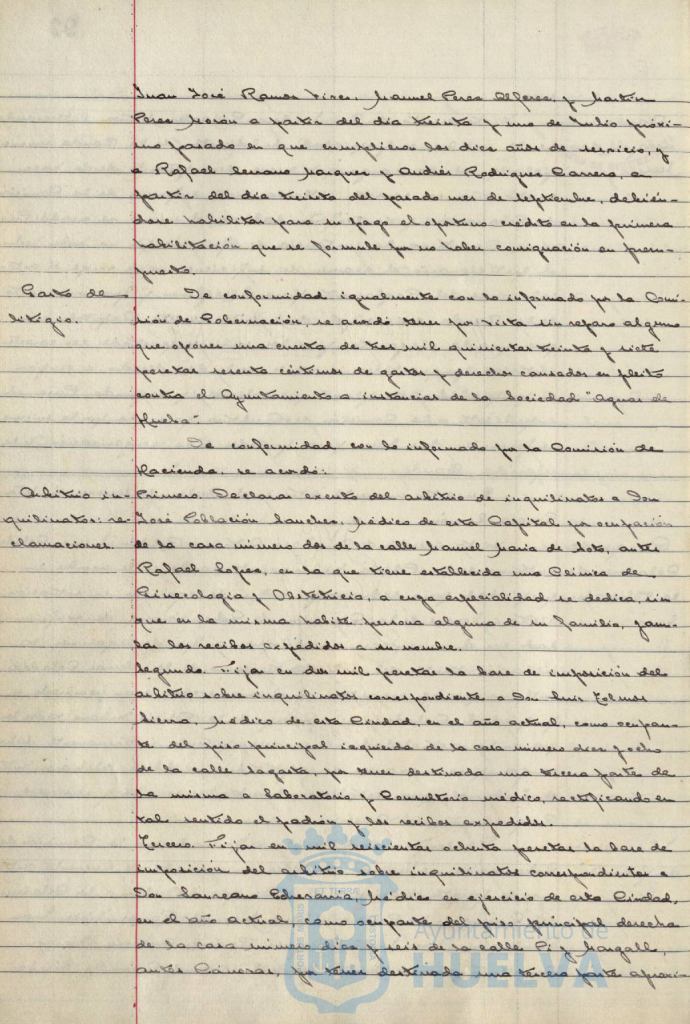 Juan José Ramos Pires, Manuel Perez Alferez, y Martin
Perez Morón a partir del dia treinta y uno de Julio próxi-
mo pasado en que cumplieron los diez años de servicio, y
a Rafael Serrano Marquez y Andrés Rodriguez Carrero, a
partir del dia treinta del pasado mes de septiembre, debién-
dose habilitar para su pago el oportuno crédito en la primera
habilitación que se formule por no haber consignación en presu-
puesto.
Gasto de
litigio.
De conformidad igualmente con lo informado por la Comi-
sión de Gobernación, se acordó tener por vista sin reparo alguno
que oponer una cuenta de tres mil quinientas treinta y siete
pesetas sesenta céntimos de gastos y derechos causados en pleito
contra el Ayuntamiento a instancias de la Sociedad "Aguas de
Huelva".
De conformidad con lo informado por la Comisión de
Hacienda, se acordó:
Arbitrio in-
quilinatos: re-
clamaciones.
Primero. Declarar exento del arbitrio de inquilinatos a Don
José Población Sanchez, Médico de esta Capital por ocupación
de la casa número dos de la calle Manuel Maria de Soto, antes
Rafael Lopez, en la que tiene establecida una Clinica de
Ginecologia y Obstetricia, a cuya especialidad se dedica, sin
que en la misma habite persona alguna de su familia, y anu-
lar los recibos expedidos a su nombre.
Segundo. Fijar en dos mil pesetas la base de imposición del
arbitrio sobre inquilinatos correspondiente a Don Luis Tolmos
Sierra, Médico de esta Ciudad, en el año actual, como ocupan-
te del piso principal izquierda de la casa número diez y ocho
de la calle Sagasta, por tener destinada una tercera parte de
la misma a Laboratorio y Consultorio médico, rectificando en
tal sentido el padrón y los recibos expedidos.
Tercero. Fijar en mil seiscientas ochenta pesetas la base de
imposición del arbitrio sobre inquilinatos correspondientes a
Don Laureano Echevarria, Médico en ejercicio de esta Ciudad,
en el año actual, como ocupante del piso principal derecha
de la casa número diez y seis de la calle Pi y Margall,
antes Cánovas, por tener destinada una tercera parte aproxi-
Ayuntamiento de
HUELVA